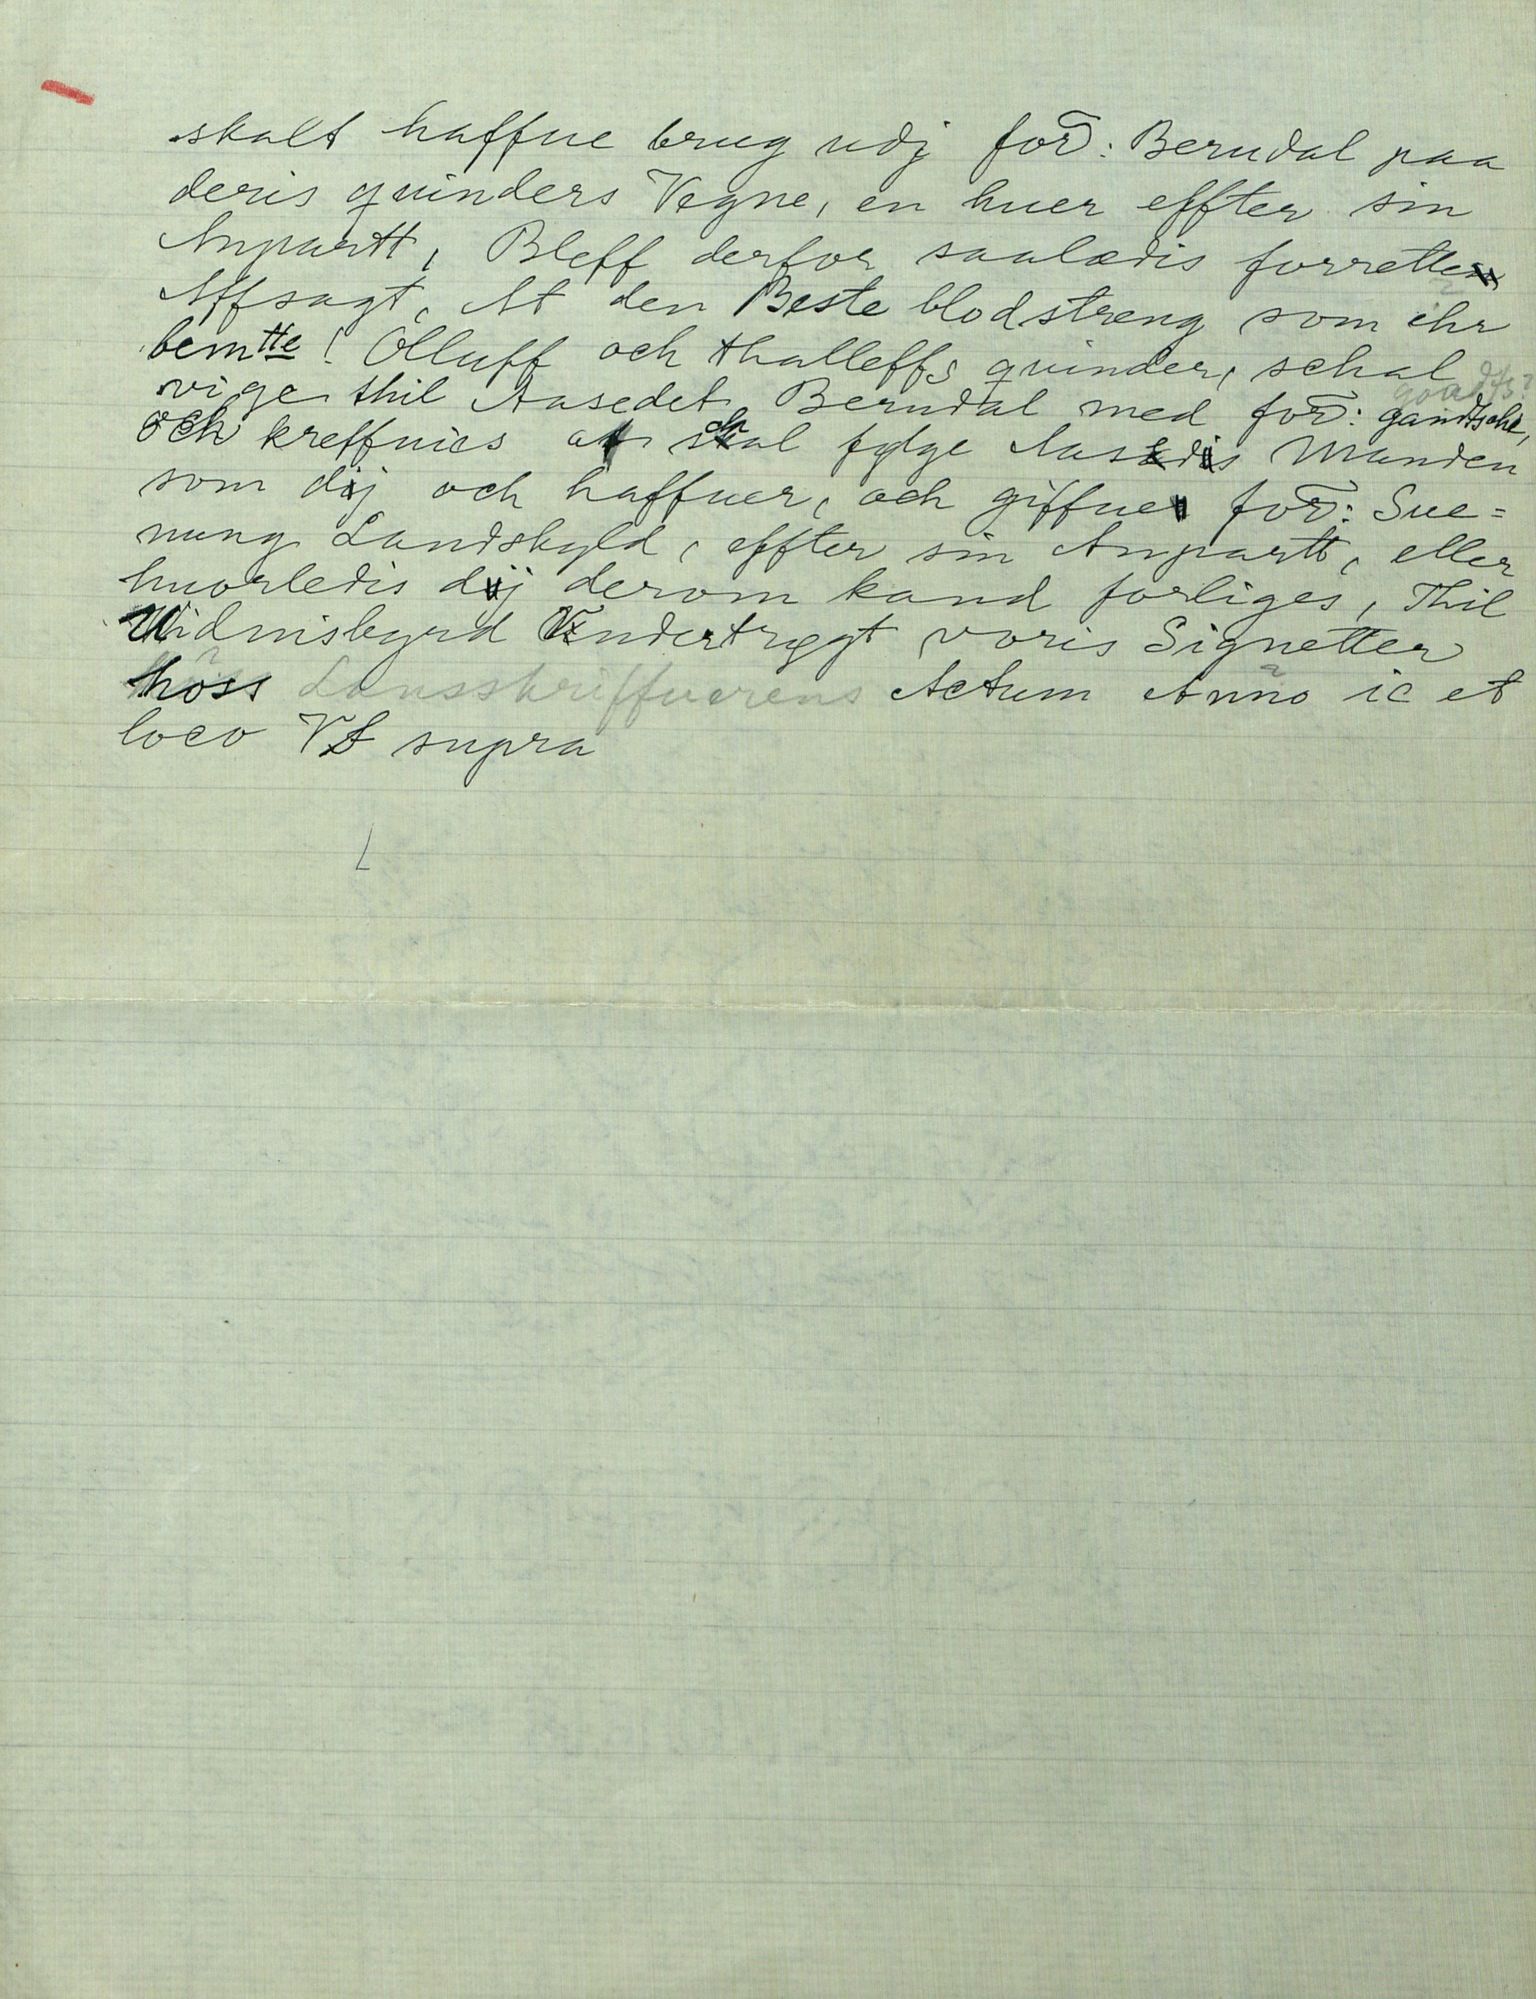 skalt haffue brug udj for̄: Berudal paa
deris quinders Vegne, en huer effter sin
Anpartt, Bleff derfor saaledis forrette
Affsagt, At den Beste blodstreng som ehr
bemtte! Olluff och thalleffs quinder, schal
vige thil Aasedet Berudal med for̄: gandtsche,
och kreffuies at schal følge Aasedis Manden
som dij och haffuer, och giffue for̄: Sue=
nung Landskyld, effter sin Anpartt, eller
huorledis dij derom kand forliges, Thil
Widnisbyrd Vndertrygt voris Signetter
hoss Lansskriffuerens Actum Anno ic et
loco Vt supra